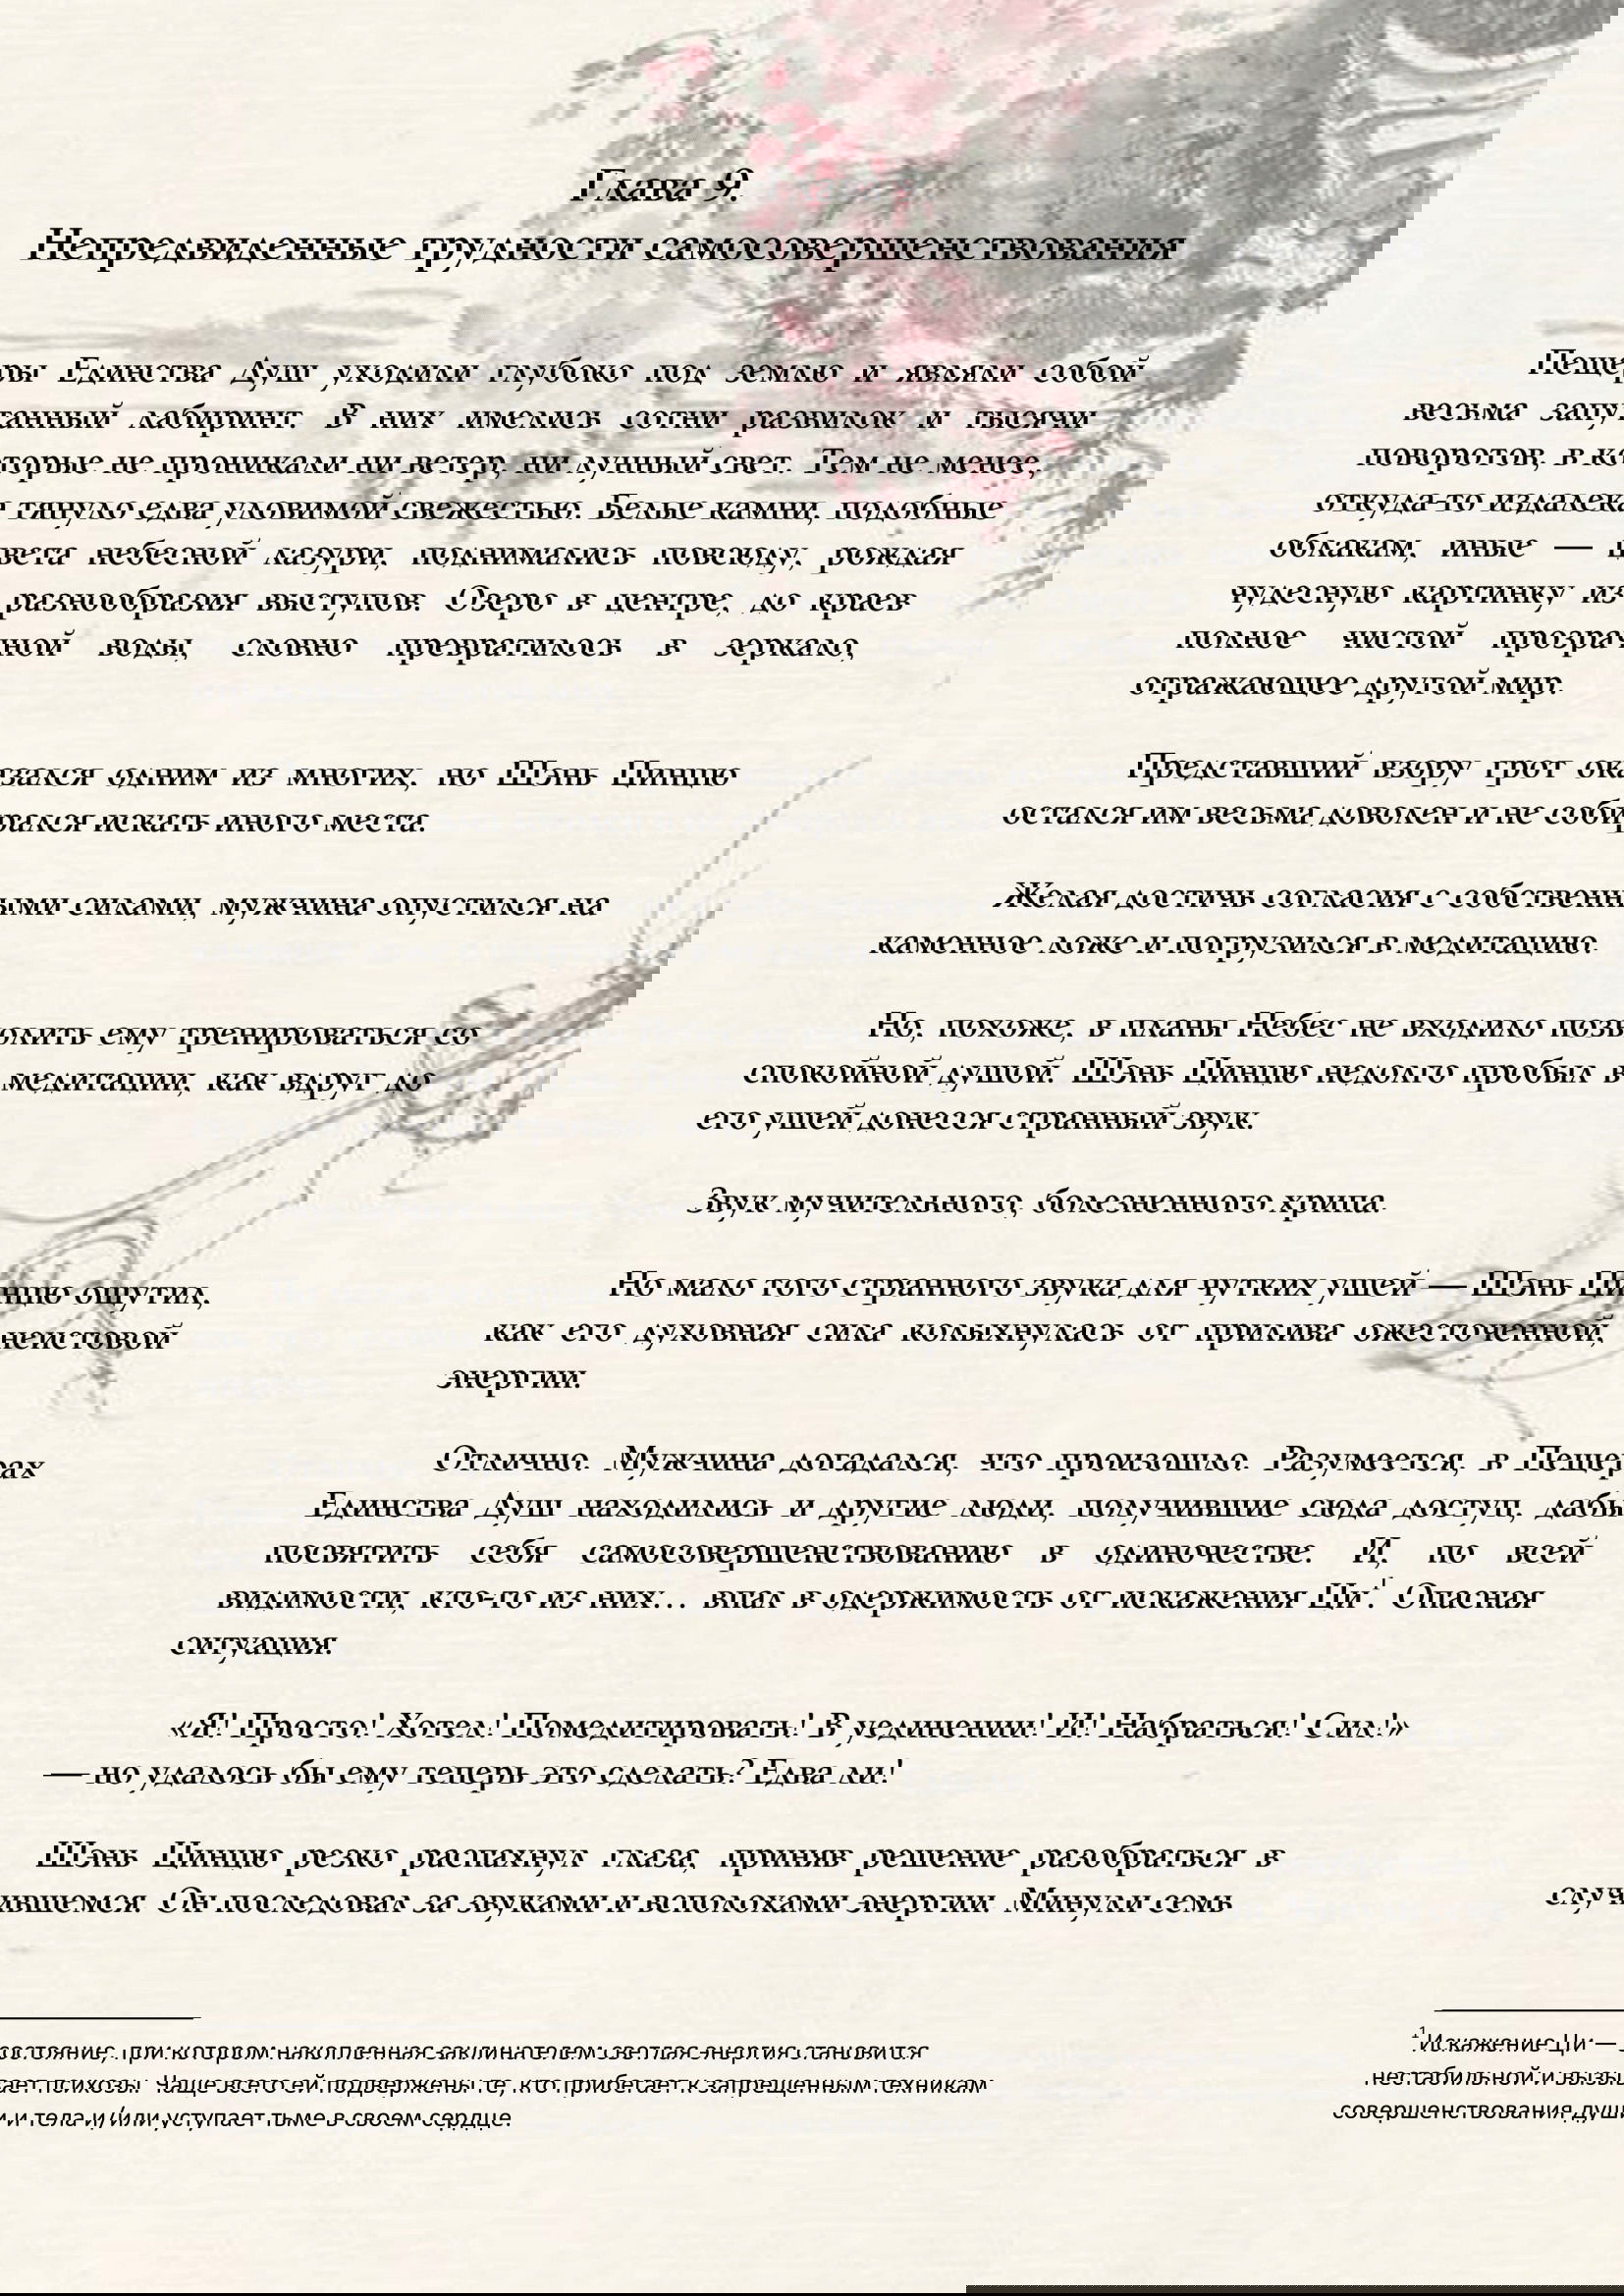 Глава 9.
Непредвиденные трудности самосовершенствования
Пещеры Единства Душ уходили глубоко под землю и являли собой
весьма запутанный лабиринт. В них имелись сотни развилок и тысячи
поворотов, в которые не проникали ни ветер, ни лунный свет. Тем не менее,
откуда-то издалека тянуло едва уловимой свежестью. Белые камни, подобные
облакам, иные — цвета небесной лазури, поднимались повсюду, рождая
чудесную картинку из разнообразия выступов. Озеро в центре, до краев
полное чистой прозрачной воды, словно превратилось в зеркало,
отражающее другой мир.
Представший взору грот оказался одним из многих, но Шэнь Цинцю
остался им весьма доволен и не собирался искать иного места.
Желая достичь согласия с собственными силами, мужчина опустился на
каменное ложе и погрузился в медитацию.
Но, похоже, в планы Небес не входило позволить ему тренироваться со
спокойной душой. Шэнь Цинцю недолго пробыл в медитации, как вдруг до
его ушей донесся странный звук.
Звук мучительного, болезненного хрипа.
Но мало того странного звука для чутких ушей — Шэнь Цинцю ощутил,
как его духовная сила колыхнулась от прилива ожесточенной, неистовой
энергии.
Отлично. Мужчина догадался, что произошло. Разумеется, в Пещерах
Единства Душ находились и другие люди, получившие сюда доступ, дабы
посвятить себя самосовершенствованию в одиночестве. И, по всей
видимости, кто-то из них… впал в одержимость от искажения Ци¹. Опасная
ситуация.
«Я! Просто! Хотел! Помедитировать! В уединении! И! Набраться! Сил!»
— но удалось бы ему теперь это сделать? Едва ли!
Шэнь Цинцю резко распахнул глаза, приняв решение разобраться в
случившемся. Он последовал за звуками и всполохами энергии. Минули семь
¹ Искажение Ци — состояние, при котором накопленная заклинателем светлая энергия становится
нестабильной и вызывает психозы. Чаще всего ей подвержены те, кто прибегает к запрещенным техникам
совершенствования души и тела и/или уступает тьме в своем сердце.